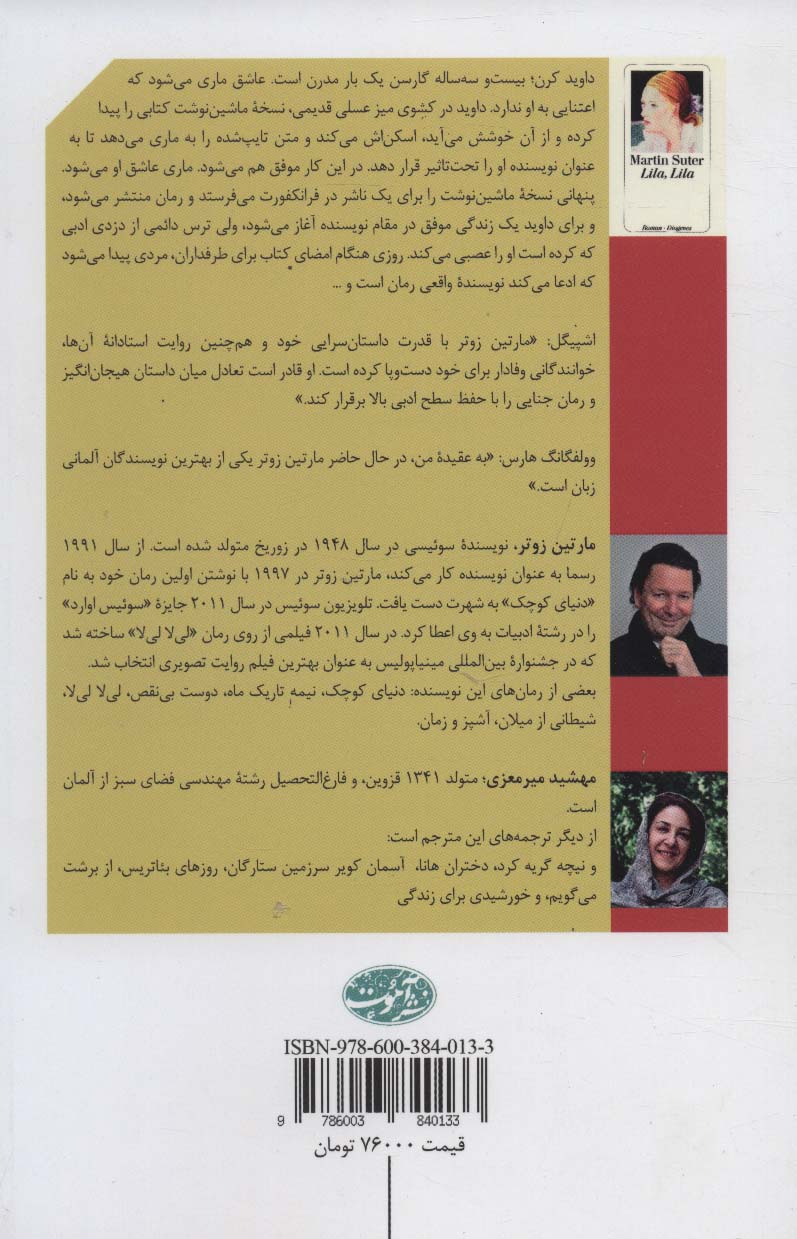 داوید کرن؛ بیست‌و سه‌ساله گارسن یک بار مدرن است. عاشق ماری می‌شود که
اعتنایی به او ندارد. داوید در کشوی میز عسلی قدیمی، نسخهٔ ماشین‌نوشت کتابی را پیدا
کرده و از آن خوشش می‌آید، اسکن‌اش می‌کند و متن تایپ‌شده را به ماری می‌دهد تا به
عنوان نویسنده او را تحت‌تاثیر قرار دهد. در این کار موفق هم می‌شود. ماری عاشق او می‌شود.
پنهانی نسخهٔ ماشین‌نوشت را برای یک ناشر در فرانکفورت می‌فرستد و رمان منتشر می‌شود،
و برای داوید یک زندگی موفق در مقام نویسنده آغاز می‌شود، ولی ترس دائمی از دزدی ادبی
که کرده است او را عصبی می‌کند. روزی هنگام امضای کتاب برای طرفداران، مردی پیدا می‌شود
که ادعا می‌کند نویسندهٔ واقعی رمان است و ...
Martin Suter
Lila, Lila
Roman · Diogenes
اشپیگل: «مارتین زوتر با قدرت داستان‌سرایی خود و هم‌چنین روایت استادانهٔ آن‌ها،
خوانندگانی وفادار برای خود دست‌وپا کرده است. او قادر است تعادل میان داستان هیجان‌انگیز
و رمان جنایی را با حفظ سطح ادبی بالا برقرار کند.»
وولفگانگ هارس: «به عقیدهٔ من، در حال حاضر مارتین زوتر یکی از بهترین نویسندگان آلمانی
زبان است.»
مارتین زوتر، نویسندهٔ سوئیسی در سال ۱۹۴۸ در زوریخ متولد شده است. از سال ۱۹۹۱
رسما به عنوان نویسنده کار می‌کند، مارتین زوتر در ۱۹۹۷ با نوشتن اولین رمان خود به نام
«دنیای کوچک» به شهرت دست یافت. تلویزیون سوئیس در سال ۲۰۱۱ جایزهٔ «سوئیس اوارد»
را در رشتهٔ ادبیات به وی اعطا کرد. در سال ۲۰۱۱ فیلمی از روی رمان «لی‌لا لی‌لا» ساخته شد
که در جشنوارهٔ بین‌المللی مینیاپولیس به عنوان بهترین فیلم روایت تصویری انتخاب شد.
بعضی از رمان‌های این نویسنده: دنیای کوچک، نیمه تاریک ماه، دوست بی‌نقص، لی‌لا لی‌لا،
شیطانی از میلان، آشپز و زمان.
مهشید میرمعزی؛ متولد ۱۳۴۱ قزوین، و فارغ‌التحصیل رشتهٔ مهندسی فضای سبز از آلمان
است.
از دیگر ترجمه‌های این مترجم است:
و نیچه گریه کرد، دختران هانا، آسمان کویر سرزمین ستارگان، روزهای بئاتریس، از برشت
می‌گویم، و خورشیدی برای زندگی
نشر آموت
ISBN-978-600-384-013-3
9 786003 840133
قیمت ۷۶۰۰۰ تومان